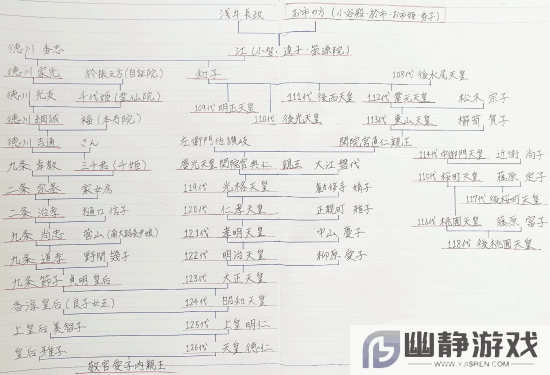 浅井長政 お市の方(小谷殿・於市・お市姫・秀子)
江(小督・達子・崇源院)
徳川 秀忠
徳川 家光 於振之方(自証院) 和子 108代 後水尾天皇
徳川 光友 千代姫(霊仙院) 111代 後西天皇 112代 霊元天皇 松木 宗子
109代 明正天皇 110代 後光天皇
徳川 綱誠 福(本寿院) 113代 東山天皇 櫛笥 賀子
徳川 吉通 さん 左衛門佐讃岐 閑院宮直仁親王
114代 中御門天皇 近衛 尚子
九条 幸教 三千君(千姫) 慶光天皇 閑院宮典仁 親王 大江 磐代
115代 桜町天皇 藤原 定子
二条 宗基 家女房 119代 光格天皇 勧修寺 婧子
117代 後桜町天皇
二条 治孝 樋口 信子 120代 仁孝天皇 正親町 雅子
116代 桃園天皇 藤原 富子
九条 尚忠 菅山 121代 孝明天皇 中山 慶子
118代 後桃園天皇
九条 道孝 野間 幾子 122代 明治天皇 柳原 愛子
九条 節子 貞明 皇后 123代 大正天皇
香淳皇后(良子女王) 124代 昭和天皇
上皇后 美智子 125代 上皇 明仁
皇后 雅子 126代 天皇 徳仁
敬宮愛子内親王
幽静游戏
WWW.YJISREN.COM